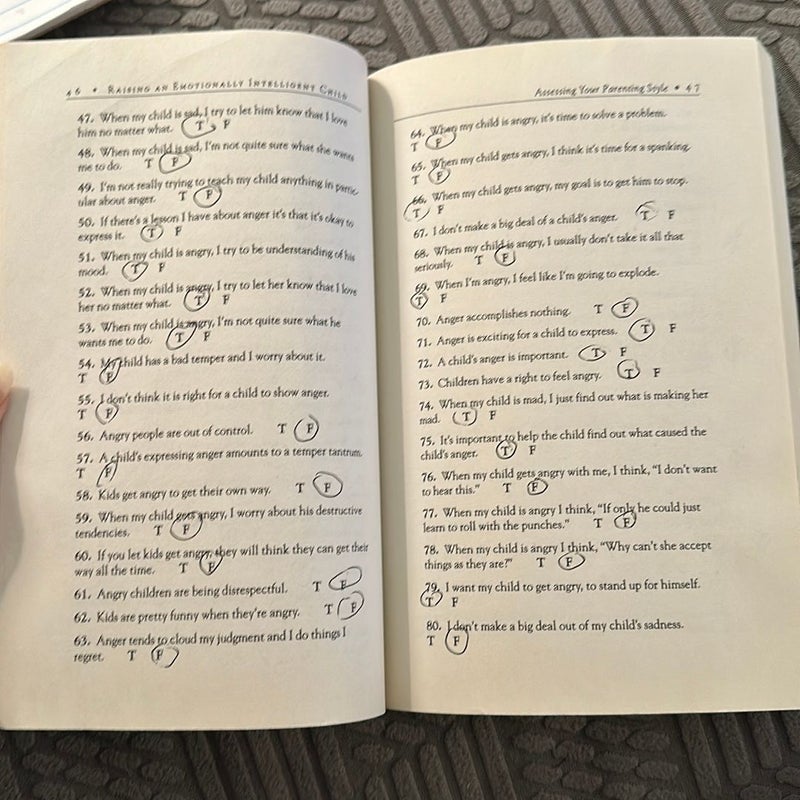 46 • RAISING AN EMOTIONALLY INTELLIGENT CHILD
47. When my child is sad, I try to let him know that I love
him no matter what. T F
48. When my child is sad, I'm not quite sure what she wants
me to do. T F
49. I'm not really trying to teach my child anything in partic-
ular about anger. T F
50. If there's a lesson I have about anger it's that it's okay to
express it. T F
51. When my child is angry, I try to be understanding of his
mood. T F
52. When my child is angry, I try to let her know that I love
her no matter what. T F
53. When my child is angry, I'm not quite sure what he
wants me to do. T F
54. My child has a bad temper and I worry about it.
T F
55. I don't think it is right for a child to show anger.
T F
56. Angry people are out of control. T F
57. A child's expressing anger amounts to a temper tantrum.
T F
58. Kids get angry to get their own way. T F
59. When my child gets angry, I worry about his destructive
tendencies. T F
60. If you let kids get angry, they will think they can get their
way all the time. T F
61. Angry children are being disrespectful. T F
62. Kids are pretty funny when they're angry. T F
63. Anger tends to cloud my judgment and I do things I
regret. T F
Assessing Your Parenting Style • 47
64. When my child is angry, it's time to solve a problem.
T F
65. When my child gets angry, I think it's time for a spanking.
T F
66. When my child gets angry, my goal is to get him to stop.
T F
67. I don't make a big deal of a child's anger. T F
68. When my child is angry, I usually don't take it all that
seriously. T F
69. When I'm angry, I feel like I'm going to explode.
T F
70. Anger accomplishes nothing. T F
71. Anger is exciting for a child to express. T F
72. A child's anger is important. T F
73. Children have a right to feel angry. T F
74. When my child is mad, I just find out what is making her
mad. T F
75. It's important to help the child find out what caused the
child's anger. T F
76. When my child gets angry with me, I think, "I don't want
to hear this." T F
77. When my child is angry I think, "If only he could just
learn to roll with the punches." T F
78. When my child is angry I think, "Why can't she accept
things as they are?" T F
79. I want my child to get angry, to stand up for himself.
T F
80. I don't make a big deal out of my child's sadness.
T F